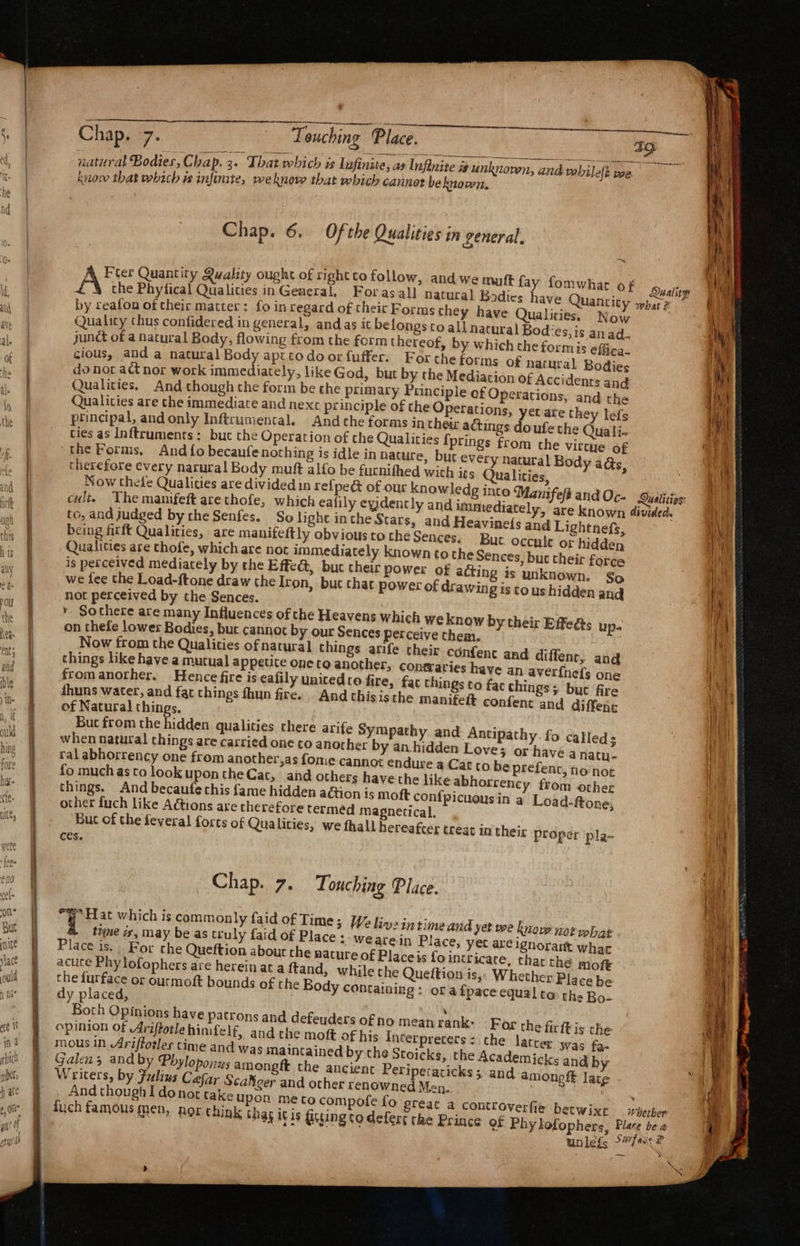 Chap. 7. Touching Place. 49
natural Bodies, Chap. 3. That which is Infinite, as Infinite is unknown, and whileſt we
know that which is infinite, we know that which cannot be known.
Chap. 6. Of the Qualities in general.
AFter Quantity Quality ought of right to follow, and we muſt ſay ſomwhat of
the Phyſical Qualities in General. For as all natural Bodies have Quantity
by reaſon of their matter: ſo in regard of their Forms they have Qualities. Now
Quality thus conſidered in general, and as it belongs to all natural Bodies, is an ad-
junct of a natural Body, flowing from the form thereof, by which the form is effica-
cious, and a natural Body apt to do or ſuffer. For the forms of natural Bodies
do not act nor work immediately, like God, but by the Mediation of Accidents and
Qualities. And though the form be the primary Principle of Operations, and the
Qualities are the immediate and next principle of the Operations, yet are they leſs
principal, and only Inſtrumental. And the forms in their actings do uſe the Quali-
ties as Inſtruments: but the Operation of the Qualities ſprings from the virtue of
the Forms. And ſo becauſe nothing is idle in nature, but every natural Body acts,
therefore every natural Body muſt alſo be furniſhed with its Qualities,
Now theſe Qualities are divided in reſpect of our knowledg into Manifeſt and Oc-
cult. The manifeſt are thoſe, which eaſily evidently and immediately, are known
to, and judged by the Senſes. So light in the Stars, and Heavineſs and Lightneſs,
being firſt Qualities, are manifeſtly obvious to the Sences. But occult or hidden
Qualities are thoſe, which are not immediately known to the Sences, but their force
is perceived mediately by the Effect, but their power of acting is unknown. So
we ſee the Load-ſtone draw the Iron, but that power of drawing is to us hidden and
not perceived by the Sences.
So there are many Influences of the Heavens which we know by their Effects up-
on theſe lower Bodies, but cannot by our Sences perceive them.
Now from the Qualities of natural things ariſe their conſent and diſſent, and
things like have a mutual appetite one to another, contraries have an averſneſs one
from anorher. Hence fire is eaſily united to fire, fat things to fat things; but fire
ſhuns water, and fat things ſhun fire. And this is the manifeſt conſent and diſſent
of Natural things.
But from the hidden qualities there ariſe Sympathy and Antipathy ſo called;
when natural things are carried one to another by an hidden Love; or have a natu-
ral abhorrency one from another, as ſome cannot endure a Cat to be preſent, no not
ſo much as to look upon the Cat, and others have the like abhorrency from other
things. And becauſe this ſame hidden action is moſt conſpicuous in a Load-ſtone,
other ſuch like Actions are therefore termed magnetical.
But of the ſeveral ſorts of Qualities, we ſhall hereafter treat in their proper pla-
ces.
Quality
what?
Qualities
divided.
Chap. 7. Touching Place.
THat which is commonly ſaid of Time; We live in time and yet we know not what
time is, may be as truly ſaid of Place: we are in Place, yet are ignorant what
Place is. For the Queſtion about the nature of Place is ſo intricate, that the moſt
acute Phyloſophers are herein at a ſtand, while the Queſtion is, Whether Place be
the ſurface or outmoſt bounds of the Body containing: or a ſpace equal to the Bo-
dy placed,
Both Opinions have patrons and defenders of no mean rank. For the firſt is the
opinion of Ariſtotle himſelf, and the moſt of his Interpreters: the latter was fa-
mous in Ariſtotles time and was maintained by the Stoicks, the Academicks and by
Galen; and by Phyloponus amongſt the ancient Peripataticks; and amongſt late
Writers, by Julius Cæſar Scaliger and other renowned Men.
And though I do not take upon me to compoſe ſo great a controverſie betwixt
ſuch famous men, nor think that it is fitting to defert the Prince of Phyloſophers,
unleſs
Whether
Place be a
Surface?